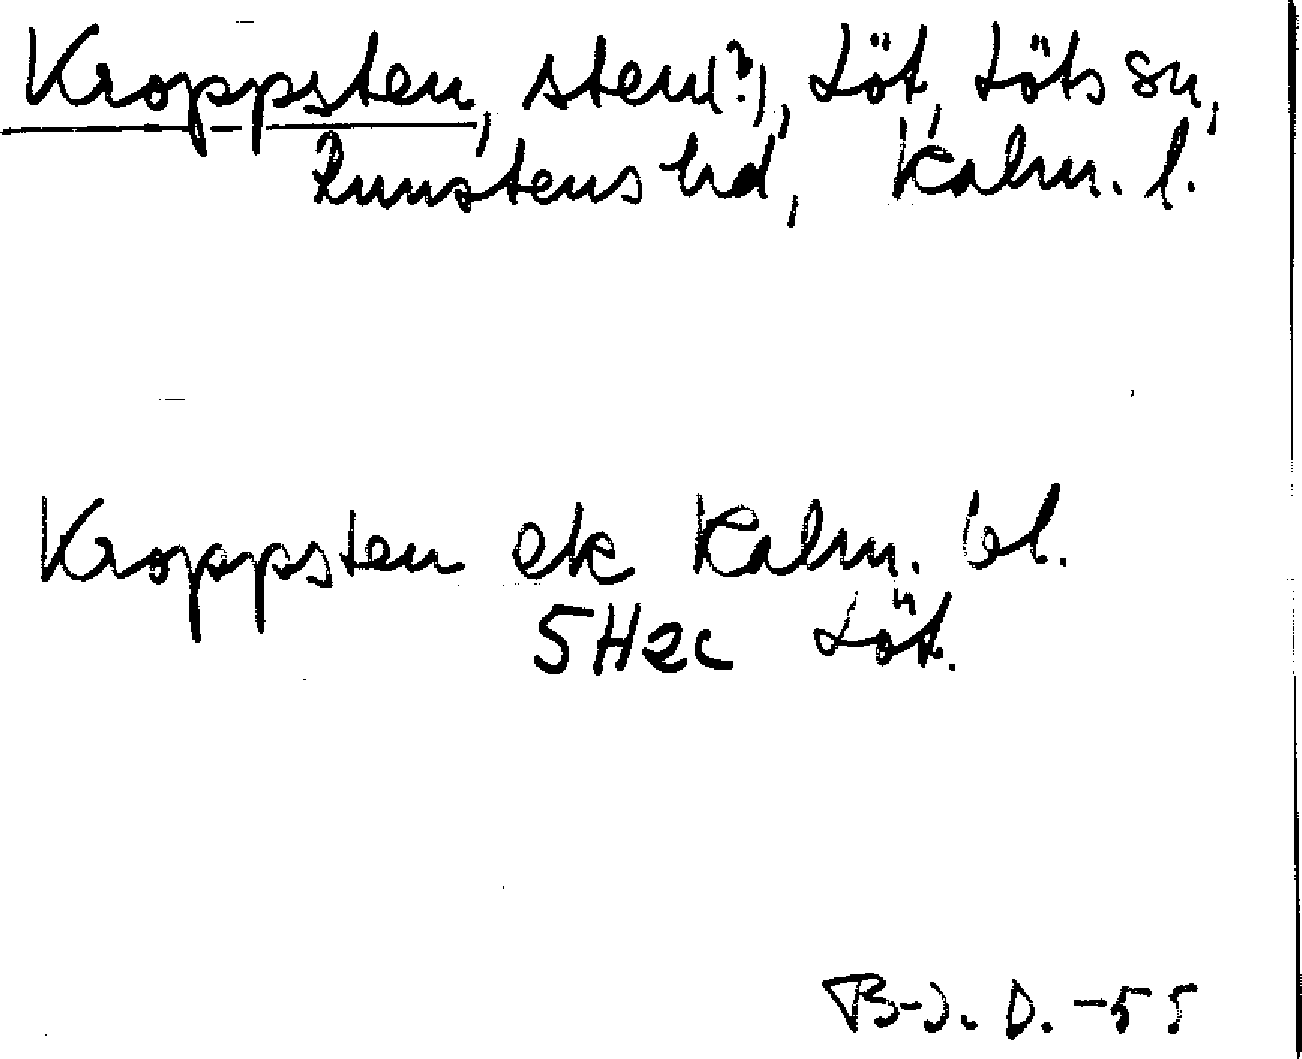 Kroppsten, sten(?), Löt, Löts sn,
Runstens hd, Kalm. l.
Kroppsten ek Kalm. bl.
5H2c Löt.
B-J. D. -55